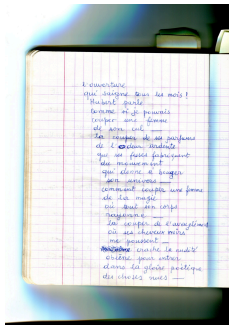 L'ouverture
qui saigne tous les mois !
Hubert parle
comme si je pouvais
couper une femme
de son cul —
La couper de ses parfums
de l'odeur ardente
que ses fesses fabriquent
du mouvement
qui donne à bouger
son univers —
comment couper une femme
de la magie
où tout son corps
rayonne —
La couper de l'
où ses cheveux noirs
me poussent —
crache la nudité
obscène pour entrer
dans la gloire poétique
des choses nues —